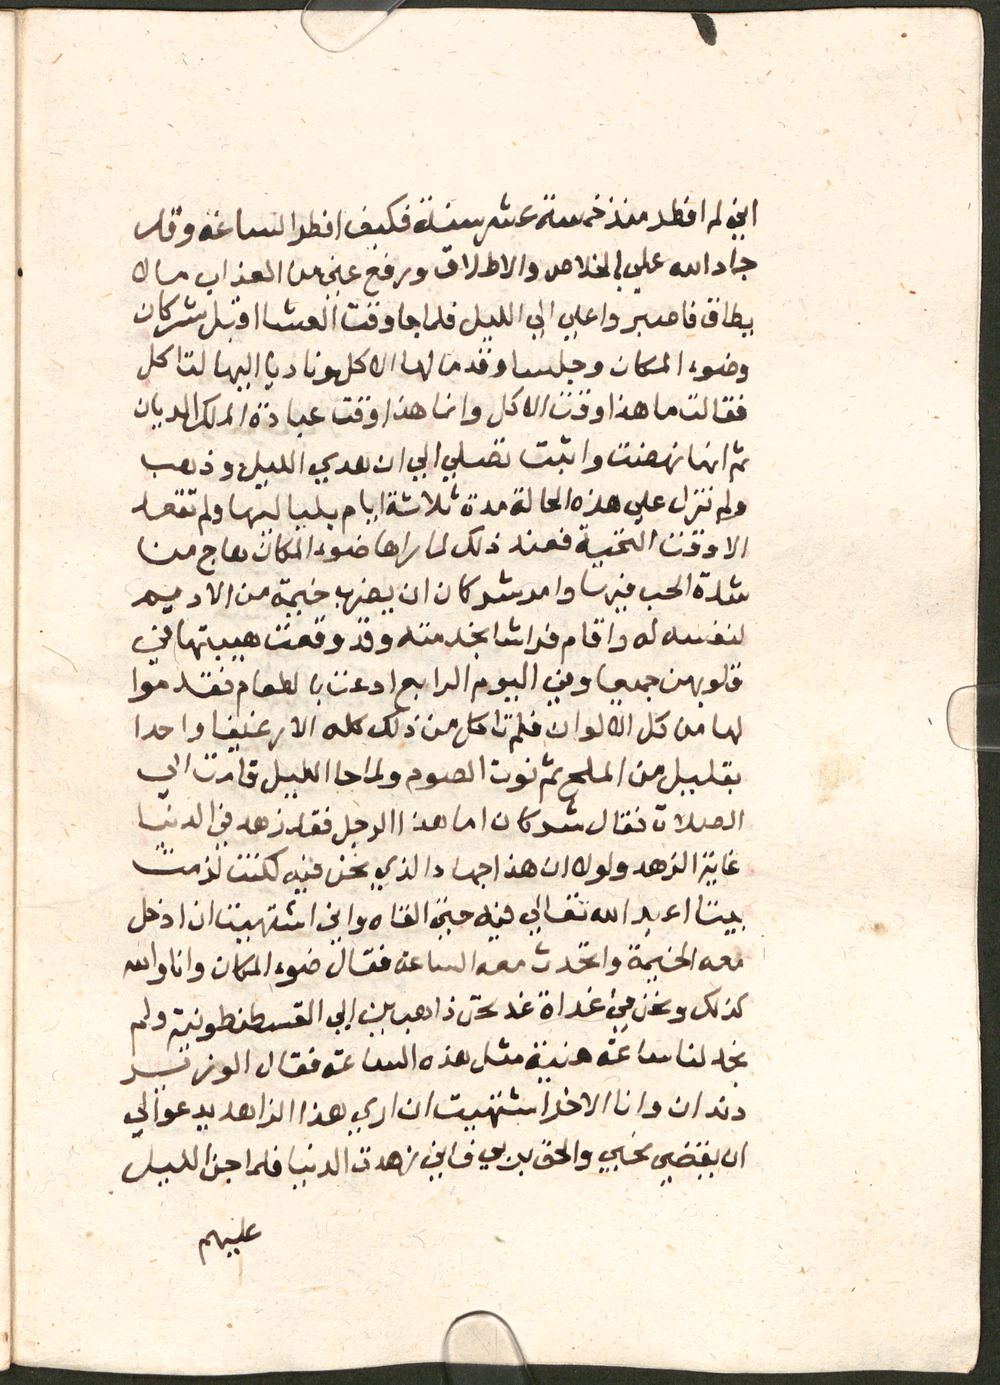 اني لم افطر منذ خمسة عشر سنة فكيف افطر الساعة وقد
جاد الله علي بالخلاص والاطلاق ورفع عني من العذاب ما لا
يطاق فاصبروا علي الي الليل فلما جا وقت العشا اقبل شركان
وضوء المكان وجلسا وقدما لها الاكل ونادياا اليها لتاكل
فقالت ما هذا وقت الاكل وانما هذا وقت عبادة الملك الديان
ثم انها نهضت واثبت تصلي الي ان هدي الليل وذهب
ولم تزل علي هذه الحالة مدة ثلاثة ايام بلياليها ولم تقعد
الا وقت التحية فعند ذلك لما راها ضوء المكان هاج من
شدة الحب فيها وامر شركان ان يضرب خيمة من الاديم
لنفسه له واقام فراشا بخدمته وقد وقعت هيبتها في
قلوبهن جميعا وفي اليوم الرابع ادعت بالطعام فقدموا
لها من كل الالوان فلم تاكل من ذلك كله الا رغيفا واحدا
بقليل من الملح ثم نوت الصوم ولما جا الليل قامت الي
الصلاة فقال شركان اما هذا الرجل فقد زهد في الدنيا
غاية الزهد ولولا ان هذا جهاد الذي نحن فيه لكنت لزمت
بيتا اعبد الله تعالي فيه حتي القاه واني اشتهيت ان ادخل
معه الخيمة واتحدث معه الساعة فقال ضوء المكان وانا والله
كذلك ونحن في غداة غد نحن ذاهبين الي القسطنطونية ولم
نجد لنا ساعة هنية مثل هذه الساعة فقال الوزير
دندان وانا الاخر اشتهيت ان اري هذا الزاهد يدعو الي
ان يقضي نحبي والحق بربي فاني زهدت الدنيا فلما جن الليل
عليهم